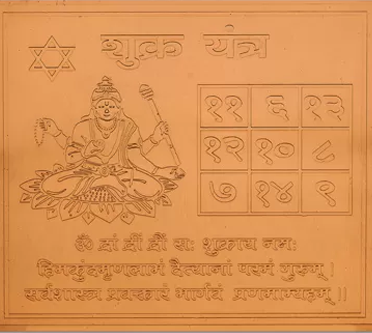 शुक्र यंत्र
११ ६ १३
१२ १० ८
७ १४ ९
ॐ द्रां द्रीं द्रौं सः शुक्राय नमः
हिमकुंदमृणालाभं दैत्यानां परमं गुरुम् |
सर्वशास्त्र प्रवक्तारं भार्गवं प्रणमाम्यहम् ||